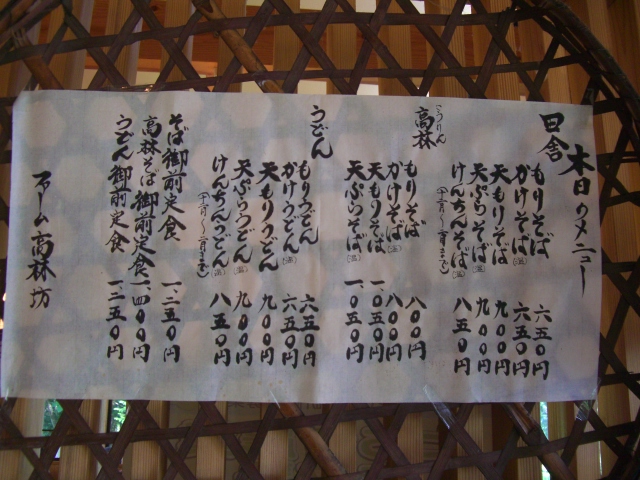 本日のメニュー
田舎
もりそば 六五〇円
かけそば(温) 六五〇円
天もりそば 九〇〇円
天ぷらそば(温) 九〇〇円
けんちんそば(温) 八五〇円
こうりん
高林
もりそば 八〇〇円
かけそば(温) 八〇〇円
天もりそば 一、〇五〇円
天ぷらそば(温) 一、〇五〇円
うどん
もりうどん 六五〇円
かけうどん(温) 六五〇円
天もりうどん 九〇〇円
天ぷらうどん(温) 九〇〇円
けんちんうどん(温) 八五〇円
そば御前定食 一、二五〇円
高林そば御前定食 一、四〇〇円
うどん御前定食 一、二五〇円
ファーム高林坊